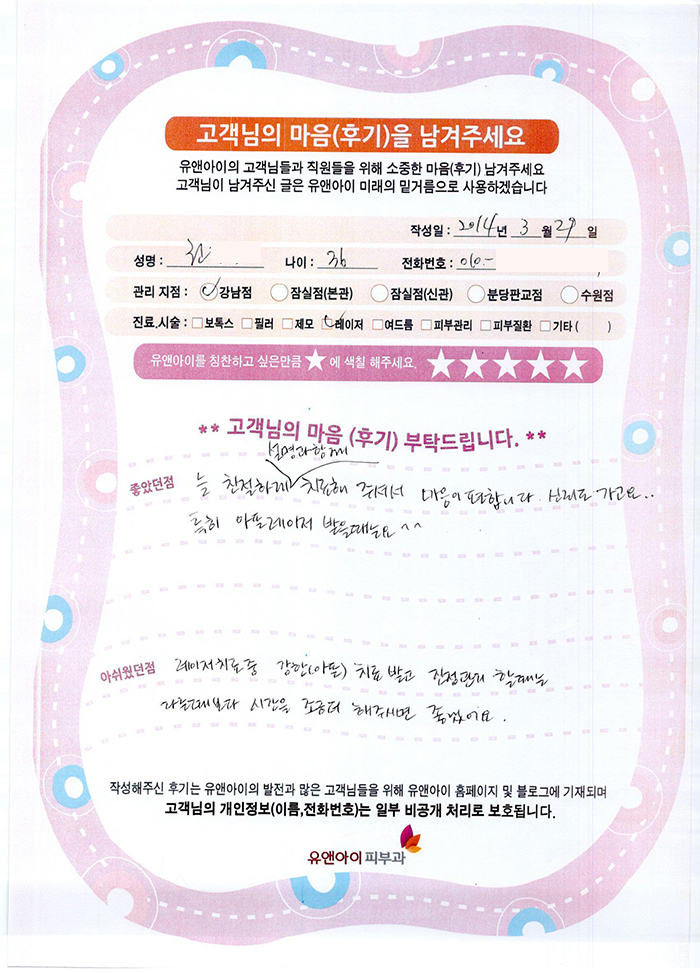 고객님의 마음(후기)을 남겨주세요
유앤아이의 고객님들과 직원들을 위해 소중한 마음(후기) 남겨주세요
고객님이 남겨주신 글은 유앤아이 미래의 밑거름으로 사용하겠습니다
작성일 : 2014년 3월 29일
성명 : 나이 : 36 전화번호 : 010.-
관리 지점 : 강남점 잠실점(본관) 잠실점(신관) 분당판교점 수원점
진료,시술 : 보톡스 필러 제모 레이저 여드름 피부관리 피부질환 기타 ( )
유앤아이를 칭찬하고 싶은만큼 ★에 색칠 해주세요. ★★★★★
** 고객님의 마음 (후기) 부탁드립니다. **
설명과함께
좋았던점 늘 친절하게 치료해 주셔서 마음이 편합니다. 신뢰도 가고요..
특히 아픈레이저 받을때는요 ^^
아쉬웠던점 레이저치료중 강한(아픈) 치료받고 진정관리 할때는
다른때보다 시간을 조금더 해주시면 좋겠어요.
작성해주신 후기는 유앤아이의 발전과 많은 고객님들을 위해 유앤아이 홈페이지 및 블로그에 기재되며
고객님의 개인정보(이름,전화번호)는 일부 비공개 처리로 보호됩니다.
유앤아이피부과